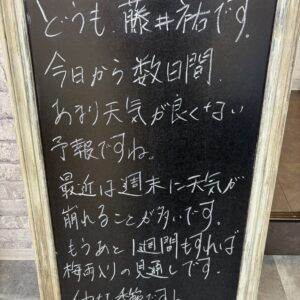 どうも、藤井祐です。
今日から数日間、
あまり天気が良くない
予報ですね。
最近は週末に天気が
崩れることが多いです。
もうあと1週間もすれば
梅雨入りの見通しです。